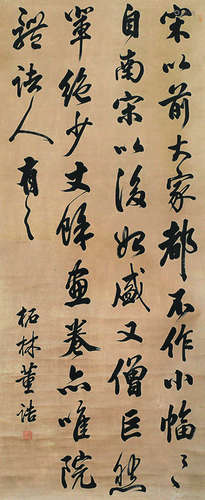 宋以前大家都不作小幅〻
自南宋以後始盛又僧巨然
筆絶少丈餘畫卷亦唯院
體諸人有之
柘林董誥